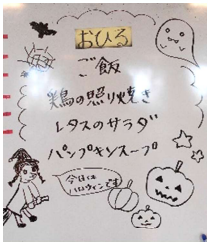 おひる
ご飯
鶏の照り焼き
レタスのサラダ
パンプキンスープ
今日はハロウィンです